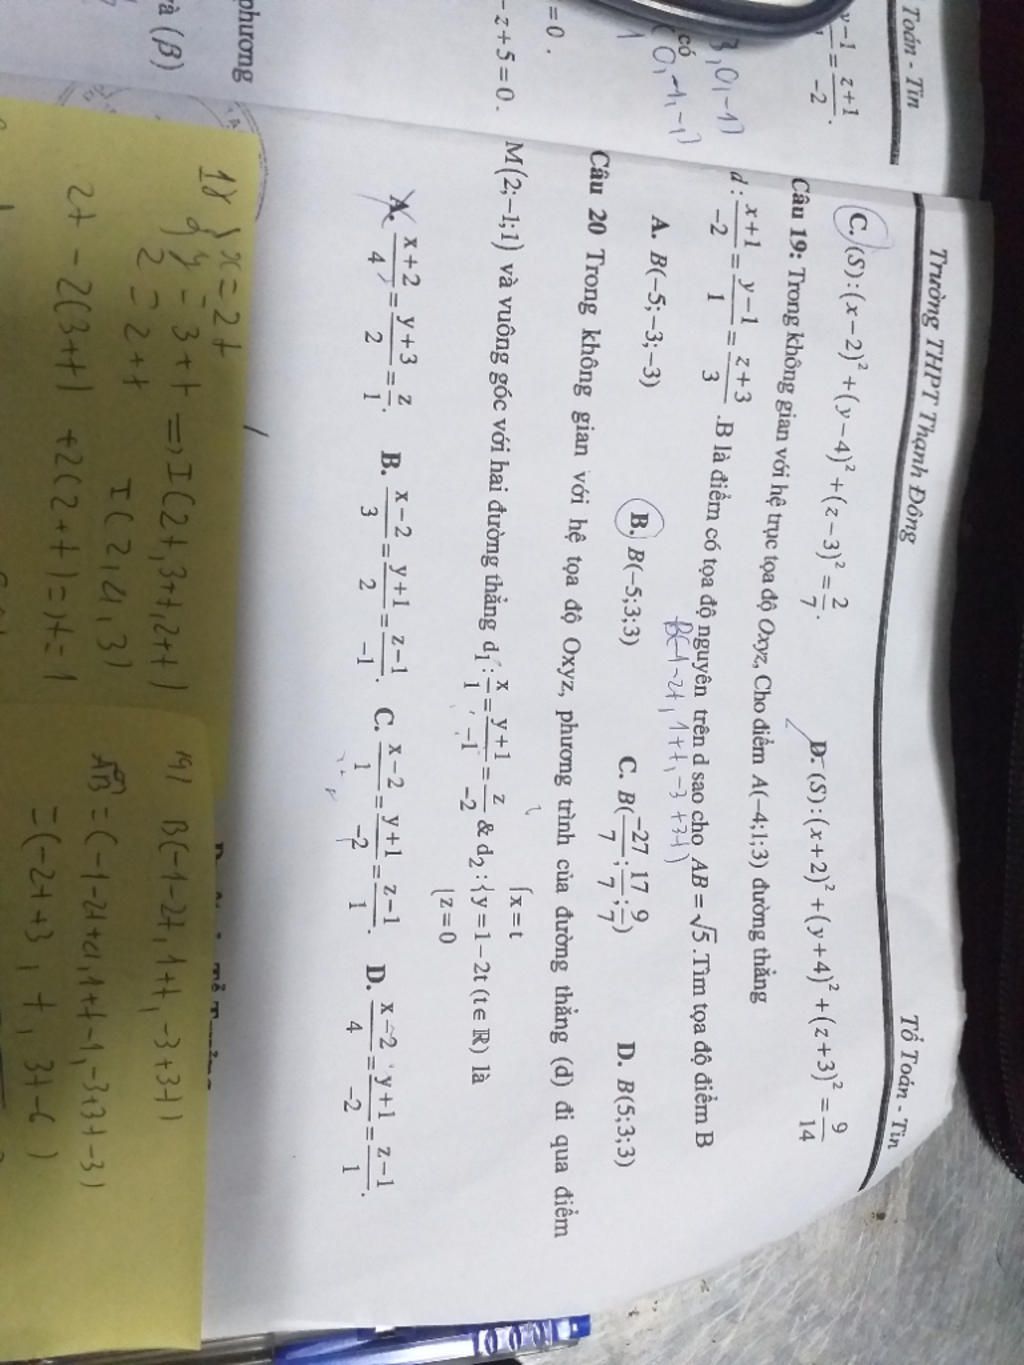 Toán - Tin
y-1 = z+1 / -2 .
3, 0, -1)
có
(0, -1, -1)
= 0 .
- z + 5 = 0 .
phương
và (β)
Trường THPT Thạnh Đông Tổ Toán - Tin
C. (S): (x-2)² + (y-4)² + (z-3)² = 2/7. D. (S): (x+2)² + (y+4)² + (z+3)² = 9/14
Câu 19: Trong không gian với hệ trục tọa độ Oxyz, Cho điểm A(-4;1;3) đường thẳng
d: (x+1)/-2 = (y-1)/1 = (z+3)/3 .B là điểm có tọa độ nguyên trên d sao cho AB = √5 .Tìm tọa độ điểm B
B(-1-2t, 1+t, -3+3t)
A. B(-5;-3;-3) B. B(-5;3;3) C. B(-27/7; 17/7; 9/7) D. B(5;3;3)
Câu 20 Trong không gian với hệ tọa độ Oxyz, phương trình của đường thẳng (d) đi qua điểm
M(2;-1;1) và vuông góc với hai đường thẳng d₁: x/1 = (y+1)/-1 = z/-2 & d₂: { x = t y = 1-2t (t∈ℝ) z = 0 là
A. (x+2)/4 = (y+3)/2 = z/1. B. (x-2)/3 = (y+1)/2 = (z-1)/-1. C. (x-2)/1 = (y+1)/-2 = (z-1)/1. D. (x-2)/4 = (y+1)/-2 = (z-1)/1.
18 { x = 2t
y = 3+t => I(2t, 3+t, 2+t)
z = 2+t
I(2, 4, 3)
2t - 2(3+t) + 2(2+t) => t = 1
19) B(-1-2t, 1+t, -3+3t)
AB = (-1-2t+4, 1+t-1, -3+3t-3)
= (-2t+3, t, 3t-6)